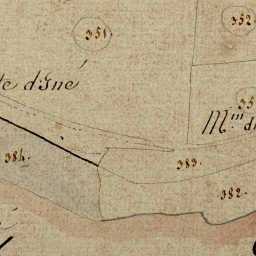 351.
352
te d'Iné
M.in
384.
383.
382.